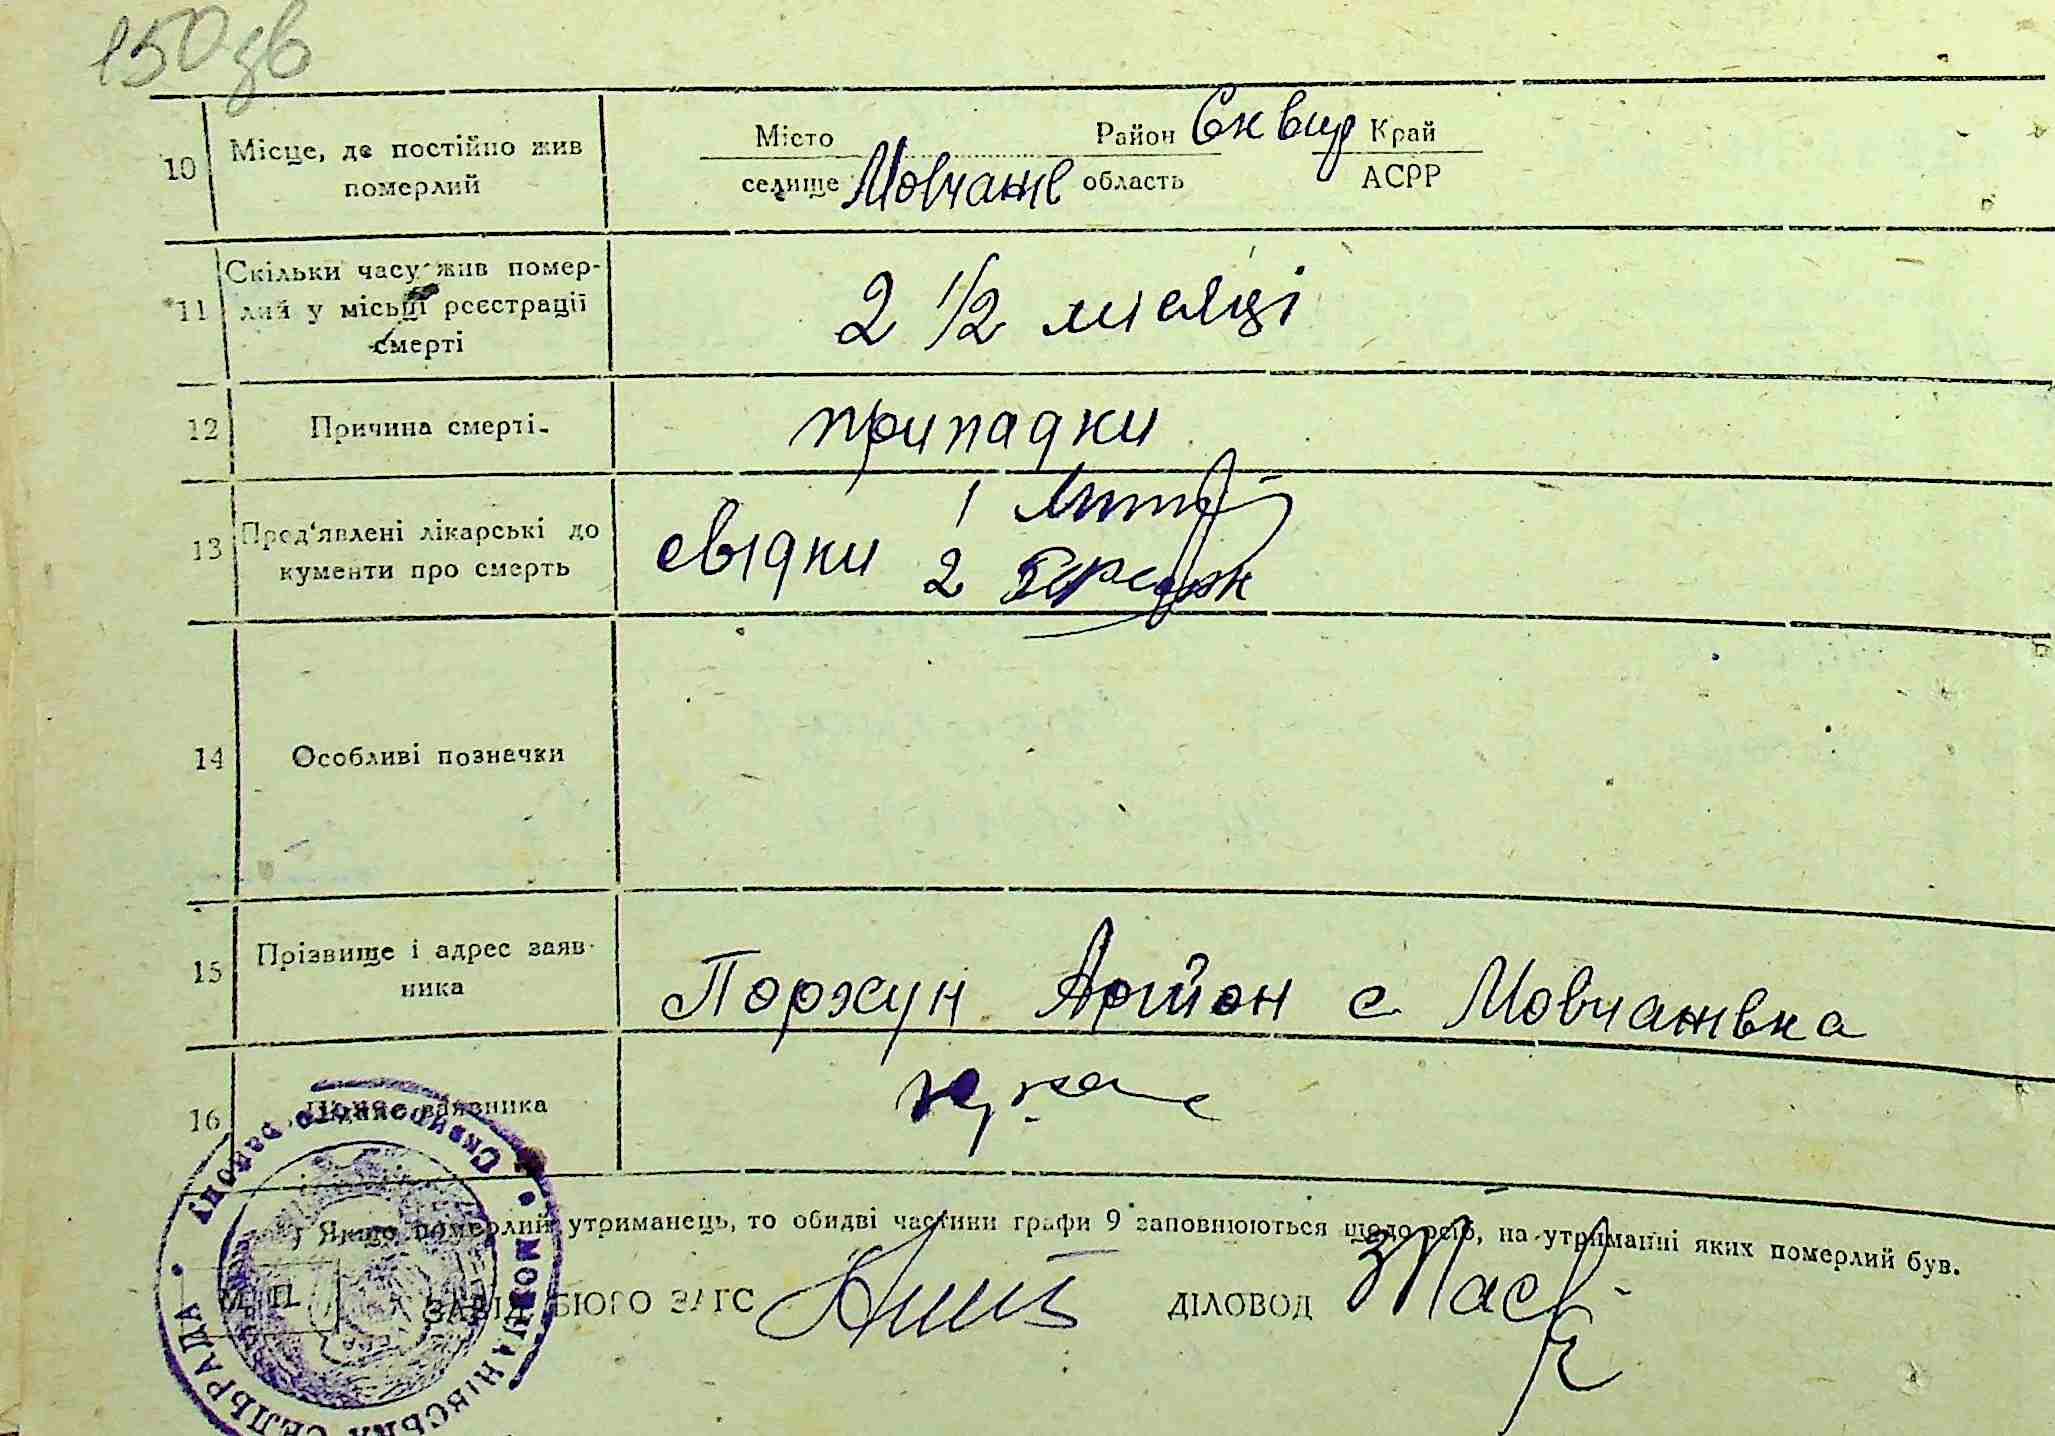 150 зв
10 Місце, де постійно жив померлий
Місто Район Сквир Край
селище Мовчанів область АСРР
11 Скільки часу жив помер-
лий у місьці реєстрації
смерті
2 1/2 місяці
12 Причина смерті. припадки
13 Пред'явлені лікарські до
кументи про смерть
свідки 1
2
14 Особливі позначки
15 Прізвище і адрес заяв-
ника
Поржун Артйон с Мовчанівка
16 Підпис заявника
) Якщо померлий утриманець, то обидві частини графи 9 заповнюються щодо осіб, на утриманні яких померлий був.
М. П. ЗАВІД. БЮРО ЗАГС ДІЛОВОД
МОВЧАНІВСЬКА СЕЛЬРАДА • Сквирського району